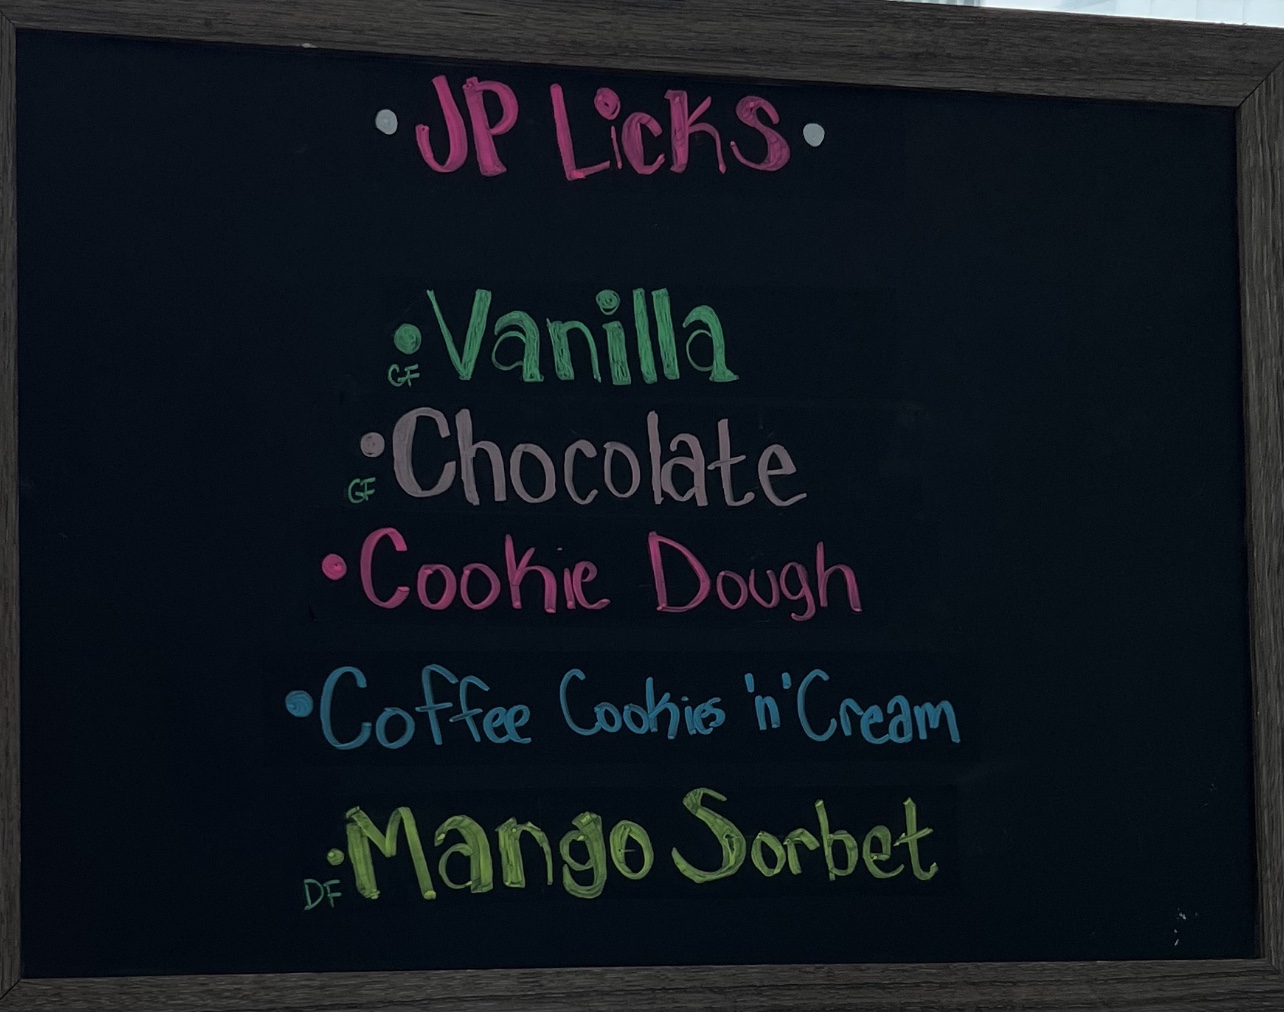 • JP Licks •
• Vanilla
GF
• Chocolate
GF
• Cookie Dough
• Coffee Cookies 'n' Cream
• Mango Sorbet
DF